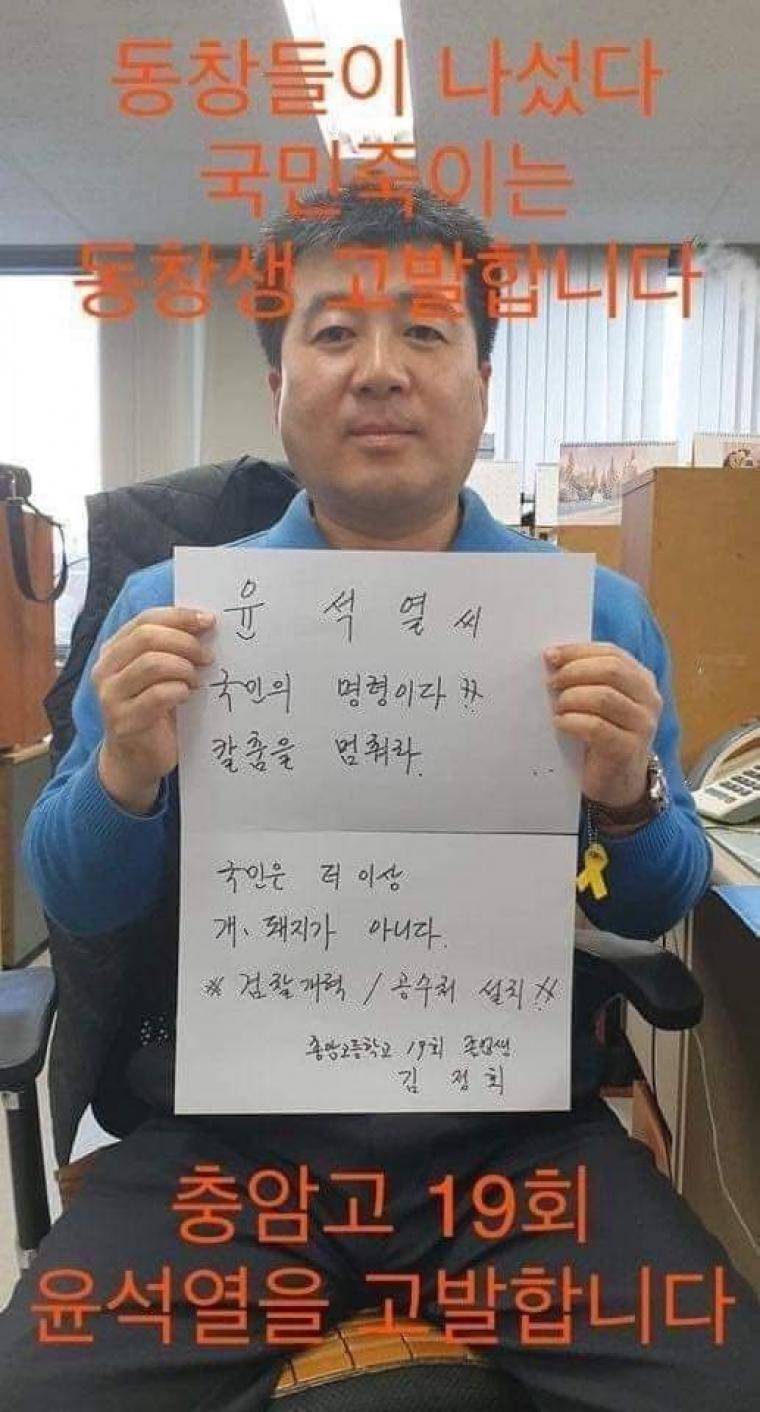 동창들이 나섰다
국민죽이는
동창생 고발합니다
윤 석 열 씨
국민의 명령이다 !!
칼춤을 멈춰라.
국민은 더 이상
개、돼지가 아니다.
※ 검찰개혁 / 공수처 설치 !!
충암고등학교 19회 졸업생
김 정 회
충암고 19회
윤석열을 고발합니다